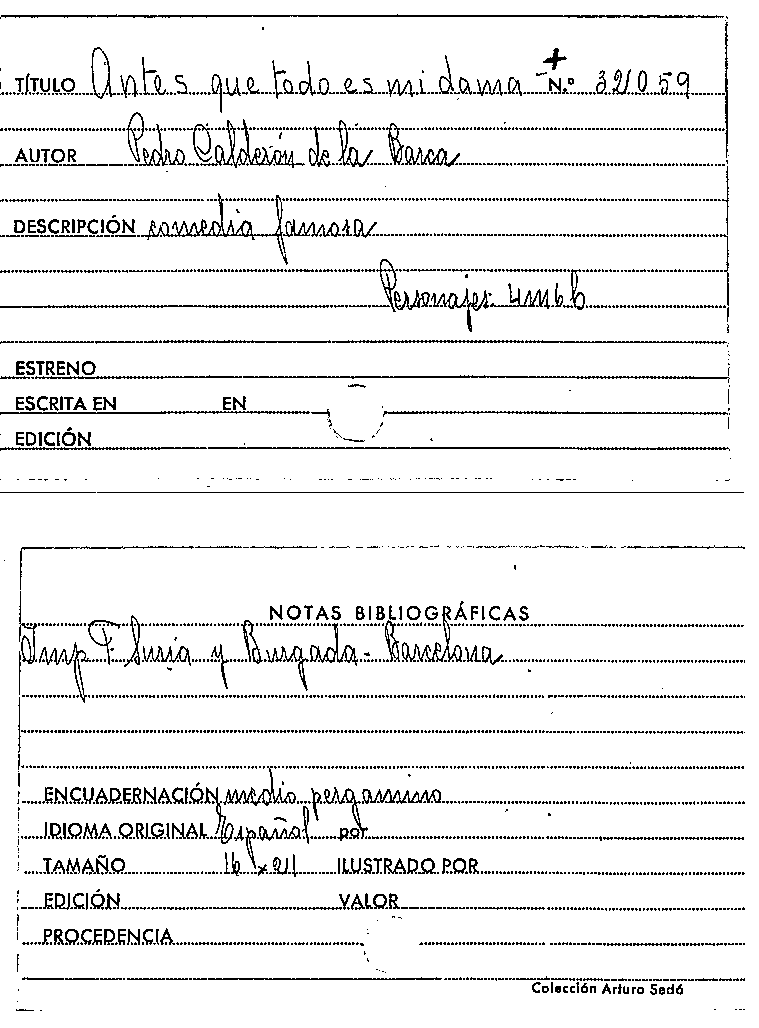 TÍTULO Antes que todo es mi dama + N.º 321059
AUTOR Pedro Calderón de la Barca
DESCRIPCIÓN comedia famosa
Personajes: 4m6h
ESTRENO
ESCRITA EN EN
EDICIÓN
NOTAS BIBLIOGRÁFICAS
Imp F. Suria y Burgada - Barcelona
ENCUADERNACIÓN medio pergamino
IDIOMA ORIGINAL Español por
TAMAÑO 16 x 21 ILUSTRADO POR
EDICIÓN VALOR
PROCEDENCIA
Colección Arturo Sedó